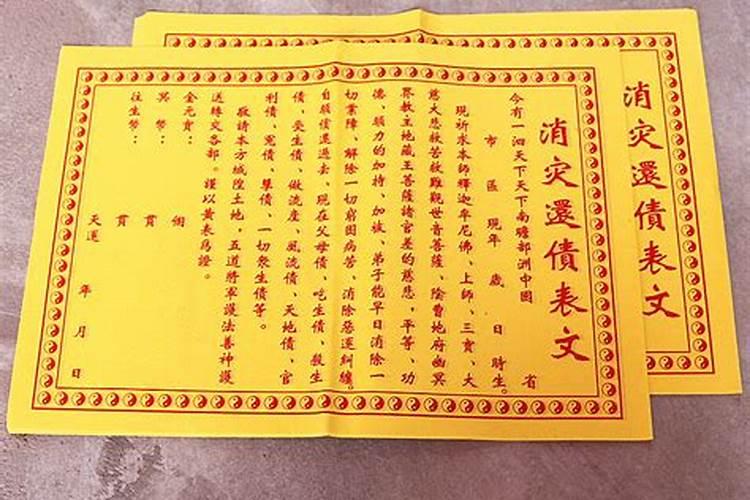 消灾還債表文
今有一泗天下天下南贍部洲中國 省
市 區 現年 歲 日 時生。
現祈求本師釋迦牟尼佛、上師、三寶、大
慈大悲救苦救難觀世音菩薩、陰曹地府幽冥
界教主地藏王菩薩諸官差的慈悲，平等、功
德、願力的加持、加被、弟子能早日消除一
切業障、解除一切窮困病苦、消除惡運糾纏。
自願償還過去、現在父母債、吃生債、殺生
債、受生債、做流產、風流債、天地債、官
利債、冤債、孽債、一切眾生債等。
敬請本方城隍土地，五道將軍護法善神護
送轉交各部。謹以黄表為證。
金元寶： 個
冥 幣： 貫
往生幣： 貫
天運 年 月 日
消灾還債表文